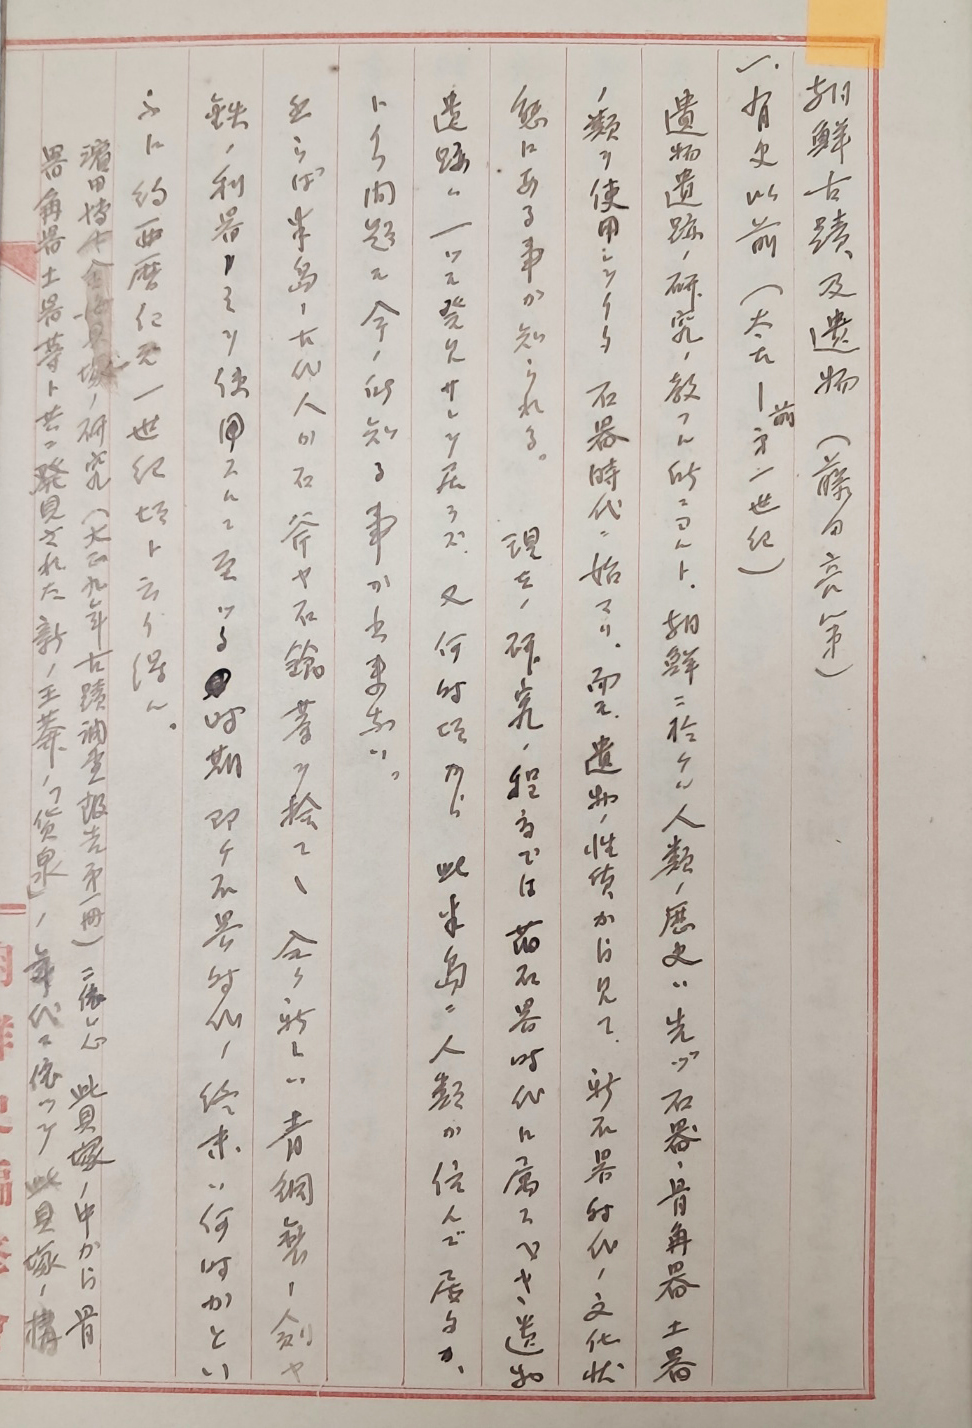 朝鮮古蹟及遺物（藤田亮策）
一、有史以前（太古ー前第一世紀）
遺物遺跡ノ研究ノ教フル所ニヨルト、朝鮮ニ於ケル人類ノ歴史ハ先ヅ石器、骨角器土器
ノ類ヲ使用シツヽアル石器時代ニ始マリ、而モ、遺物ノ性質から見て、新石器時代ノ文化状
態にある事が知られる。現在ノ研究ノ程度では旧石器時代に属スベキ遺物
遺跡ハ一ツモ発見サレヲ居ラズ、又何時頃から此半島ニ人類が住んで居るか、
トイフ問題モ今ノ所知る事が出来ない。
然らば半島ノ古代人が石斧や石鏃等ヲ捨てヽ全ク新しい青銅製ノ剣や
鉄ノ利器ノミヲ使用スルニ至ツる時期即ケ石器時代ノ終末ハ何時かとい
ふに約西歴紀元一世紀頃ト云ヒ得ル。
濱田博士金海貝塚ノ研究（大正九年古蹟調査報告第一冊）ニ依レバ此貝塚ノ中から骨
器角器土器等ト共ニ発見された新ノ王莽ノ「貨泉」ノ年代ニ依ツヲ此貝塚ノ構
朝鮮史編修会